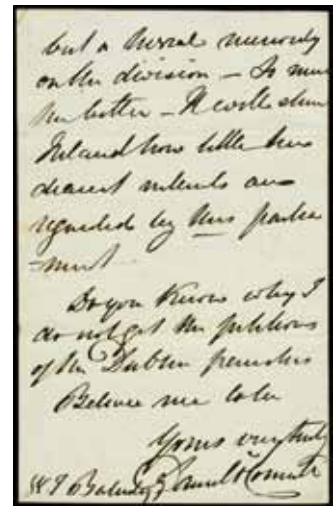 but a miserable minority
on the division – So much
the better – It will shew
Ireland how little her
dearest interests are
regarded by this parlia
=ment.
Do you know why I
do not get the petitions
of the Dublin parishes
Believe me to be
Yours very truly
Daniel O'Connell